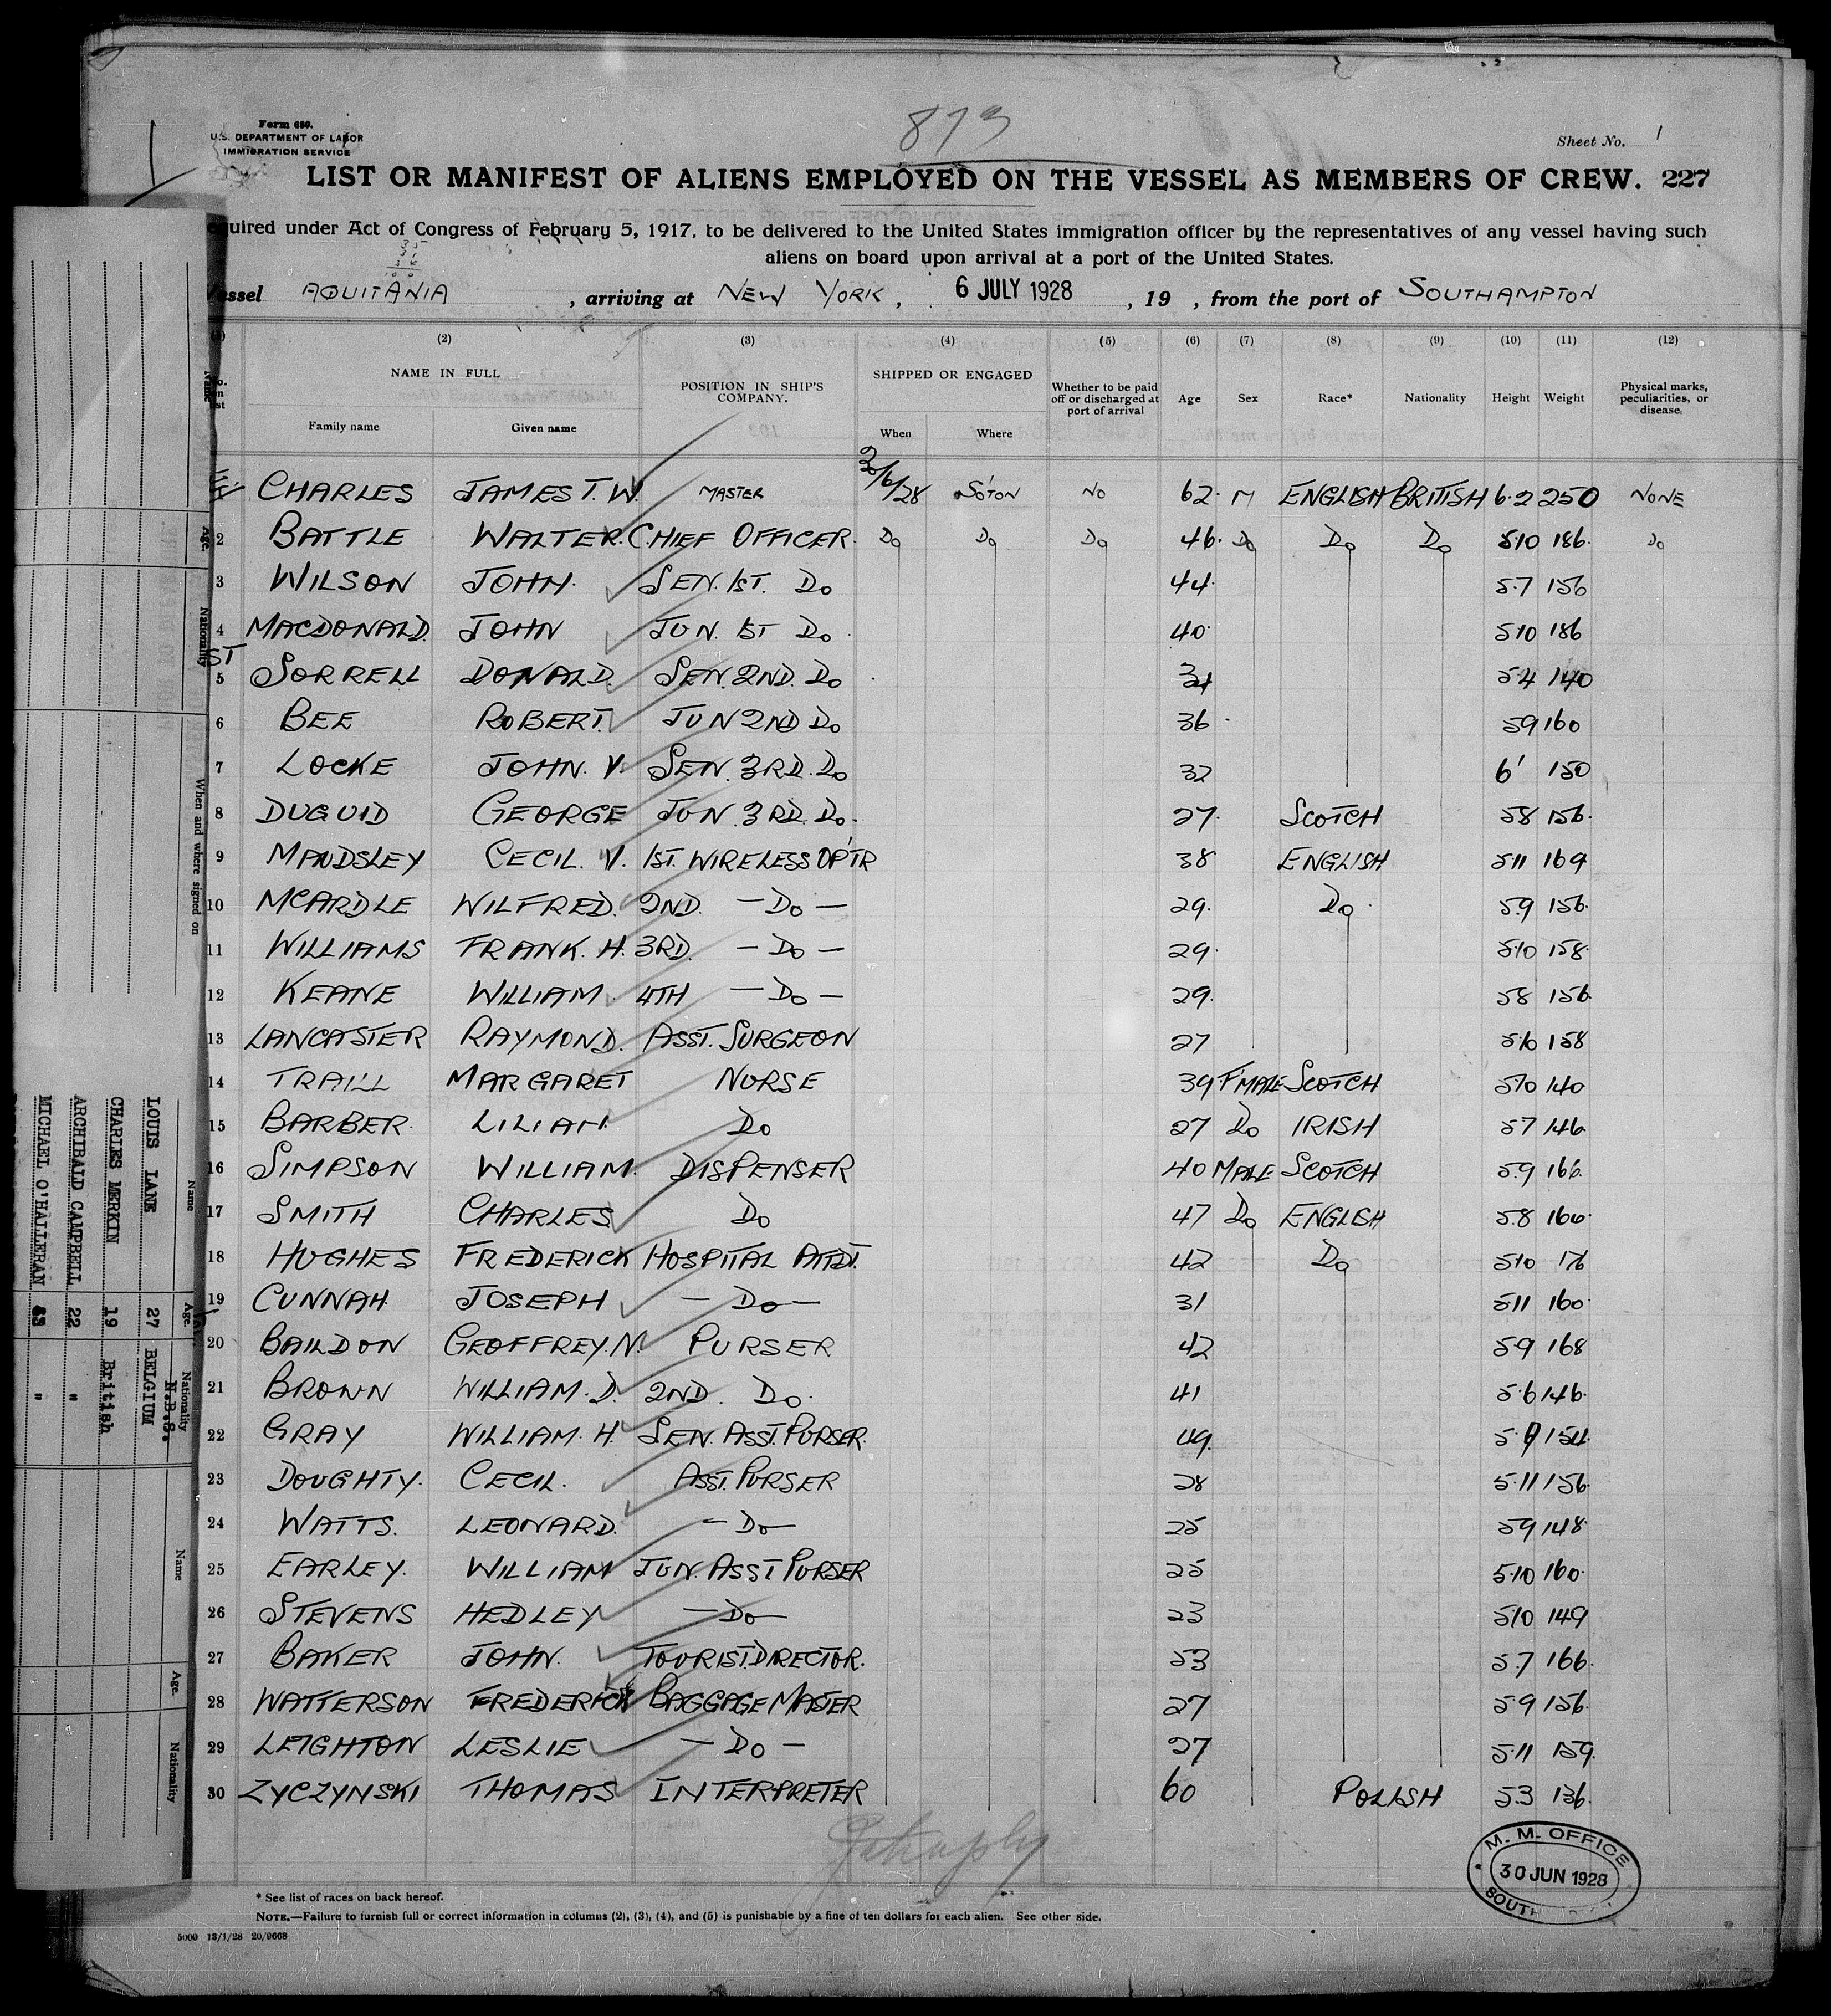 873
Form 680.
U.S. DEPARTMENT OF LABOR
IMMIGRATION SERVICE
Sheet No. 1
LIST OR MANIFEST OF ALIENS EMPLOYED ON THE VESSEL AS MEMBERS OF CREW. 227
quired under Act of Congress of February 5, 1917, to be delivered to the United States immigration officer by the representatives of any vessel having such
aliens on board upon arrival at a port of the United States.
essel AQUITANIA , arriving at NEW YORK, 6 JULY 1928 , 19 , from the port of SOUTHAMPTON
(2) (3) (4) (5) (6) (7) (8) (9) (10) (11) (12)
NAME IN FULL POSITION IN SHIP'S COMPANY. SHIPPED OR ENGAGED Whether to be paid off or discharged at port of arrival Age Sex Race* Nationality Height Weight Physical marks, peculiarities, or disease.
Family name Given name When Where
CHARLES JAMES T. W. MASTER 30/6/28 SO'TON NO 62. M ENGLISH BRITISH 6.2 250 NONE
2 BATTLE WALTER. CHIEF OFFICER. Do Do Do 46. Do Do Do 5.10 186. Do
3 WILSON JOHN. SEN. 1ST. Do 44. 5.7 156
4 MACDONALD. JOHN JUN. 1ST Do. 40. 5.10 186
ST
5 SORRELL DONALD. SEN. 2ND. Do 5.4 140
6 BEE ROBERT. JUN 2ND Do 36. 5.9 160
7 LOCKE JOHN. V. SEN. 3RD. Do 32 6' 150
8 DUGUID GEORGE JUN. 3RD. Do. 27. SCOTCH 5.8 156.
9 MANDSLEY CECIL. V. 1ST. WIRELESS OP'TR 38 ENGLISH 5.11 169
10 MCARDLE WILFRED. 2ND. - Do - 29. Do. 5.9 156.
11 WILLIAMS FRANK. H. 3RD. - Do - 29. 5.10 158.
12 KEANE WILLIAM. 4TH - Do - 29. 5.8 156.
13 LANCASTER RAYMOND. ASST. SURGEON 27 158
14 TRAILL MARGARET NURSE 39 F'MALE SCOTCH 5.10 140
15 BARBER. LILIAN. Do 27 Do IRISH 5.7 146
16 SIMPSON WILLIAM. DISPENSER 40 MALE SCOTCH 5.9 166.
17 SMITH CHARLES Do 47 Do ENGLISH 5.8 160.
18 HUGHES FREDERICK HOSPITAL ATTDT. 42 Do 5.10 176
19 CUNNAH. JOSEPH - Do - 31 5.11 160.
20 BAILDON GEOFFREY. N. PURSER 42 5.9 168
21 BROWN WILLIAM. D. 2ND. Do. 41 5.6 146.
22 GRAY WILLIAM. H. SEN. ASST. PURSER. 49. 154.
23 DOUGHTY. CECIL. ASST. PURSER 28 5.11 156.
24 WATTS. LEONARD. - Do - 25 5.9 148.
25 EARLEY. WILLIAM JUN. ASST PURSER 25 5.10 160.
26 STEVENS HEDLEY - Do - 23 5.10 149
27 BAKER JOHN. TOURIST. DIRECTOR. 53 5.7 166.
28 WATTERSON FREDERICK BAGGAGE MASTER 27 5.9 156.
29 LEIGHTON LESLIE - Do - 27 5.11 159.
30 ZYCZYNSKI THOMAS INTERPRETER 60 POLISH 5.3 136.
M. M. OFFICE
30 JUN 1928
* See list of races on back hereof.
NOTE.—Failure to furnish full or correct information in columns (2), (3), (4), and (5) is punishable by a fine of ten dollars for each alien. See other side.
5000 13/1/28 20/9668
Name Age. Nationality When and where signed on
Name Age. Nationality
N.B.S.
LOUIS LANE 27 BELGIUM
CHARLES MERKIN 19 British
ARCHIBALD CAMPBELL 22 "
MICHAEL O'HALLERAN "
Name Age. Nationality